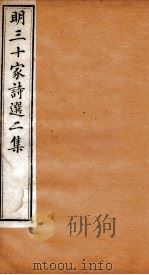 明三十家詩選二集
mtoou.info